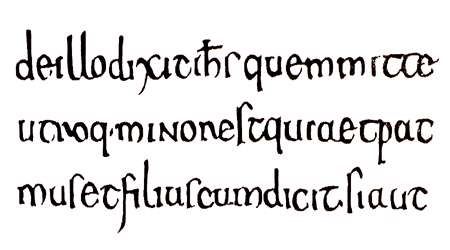 deillodixitih̅squemmitte
utinoq·minonestquiaetpat
musetfiliuscumdicitsiaut